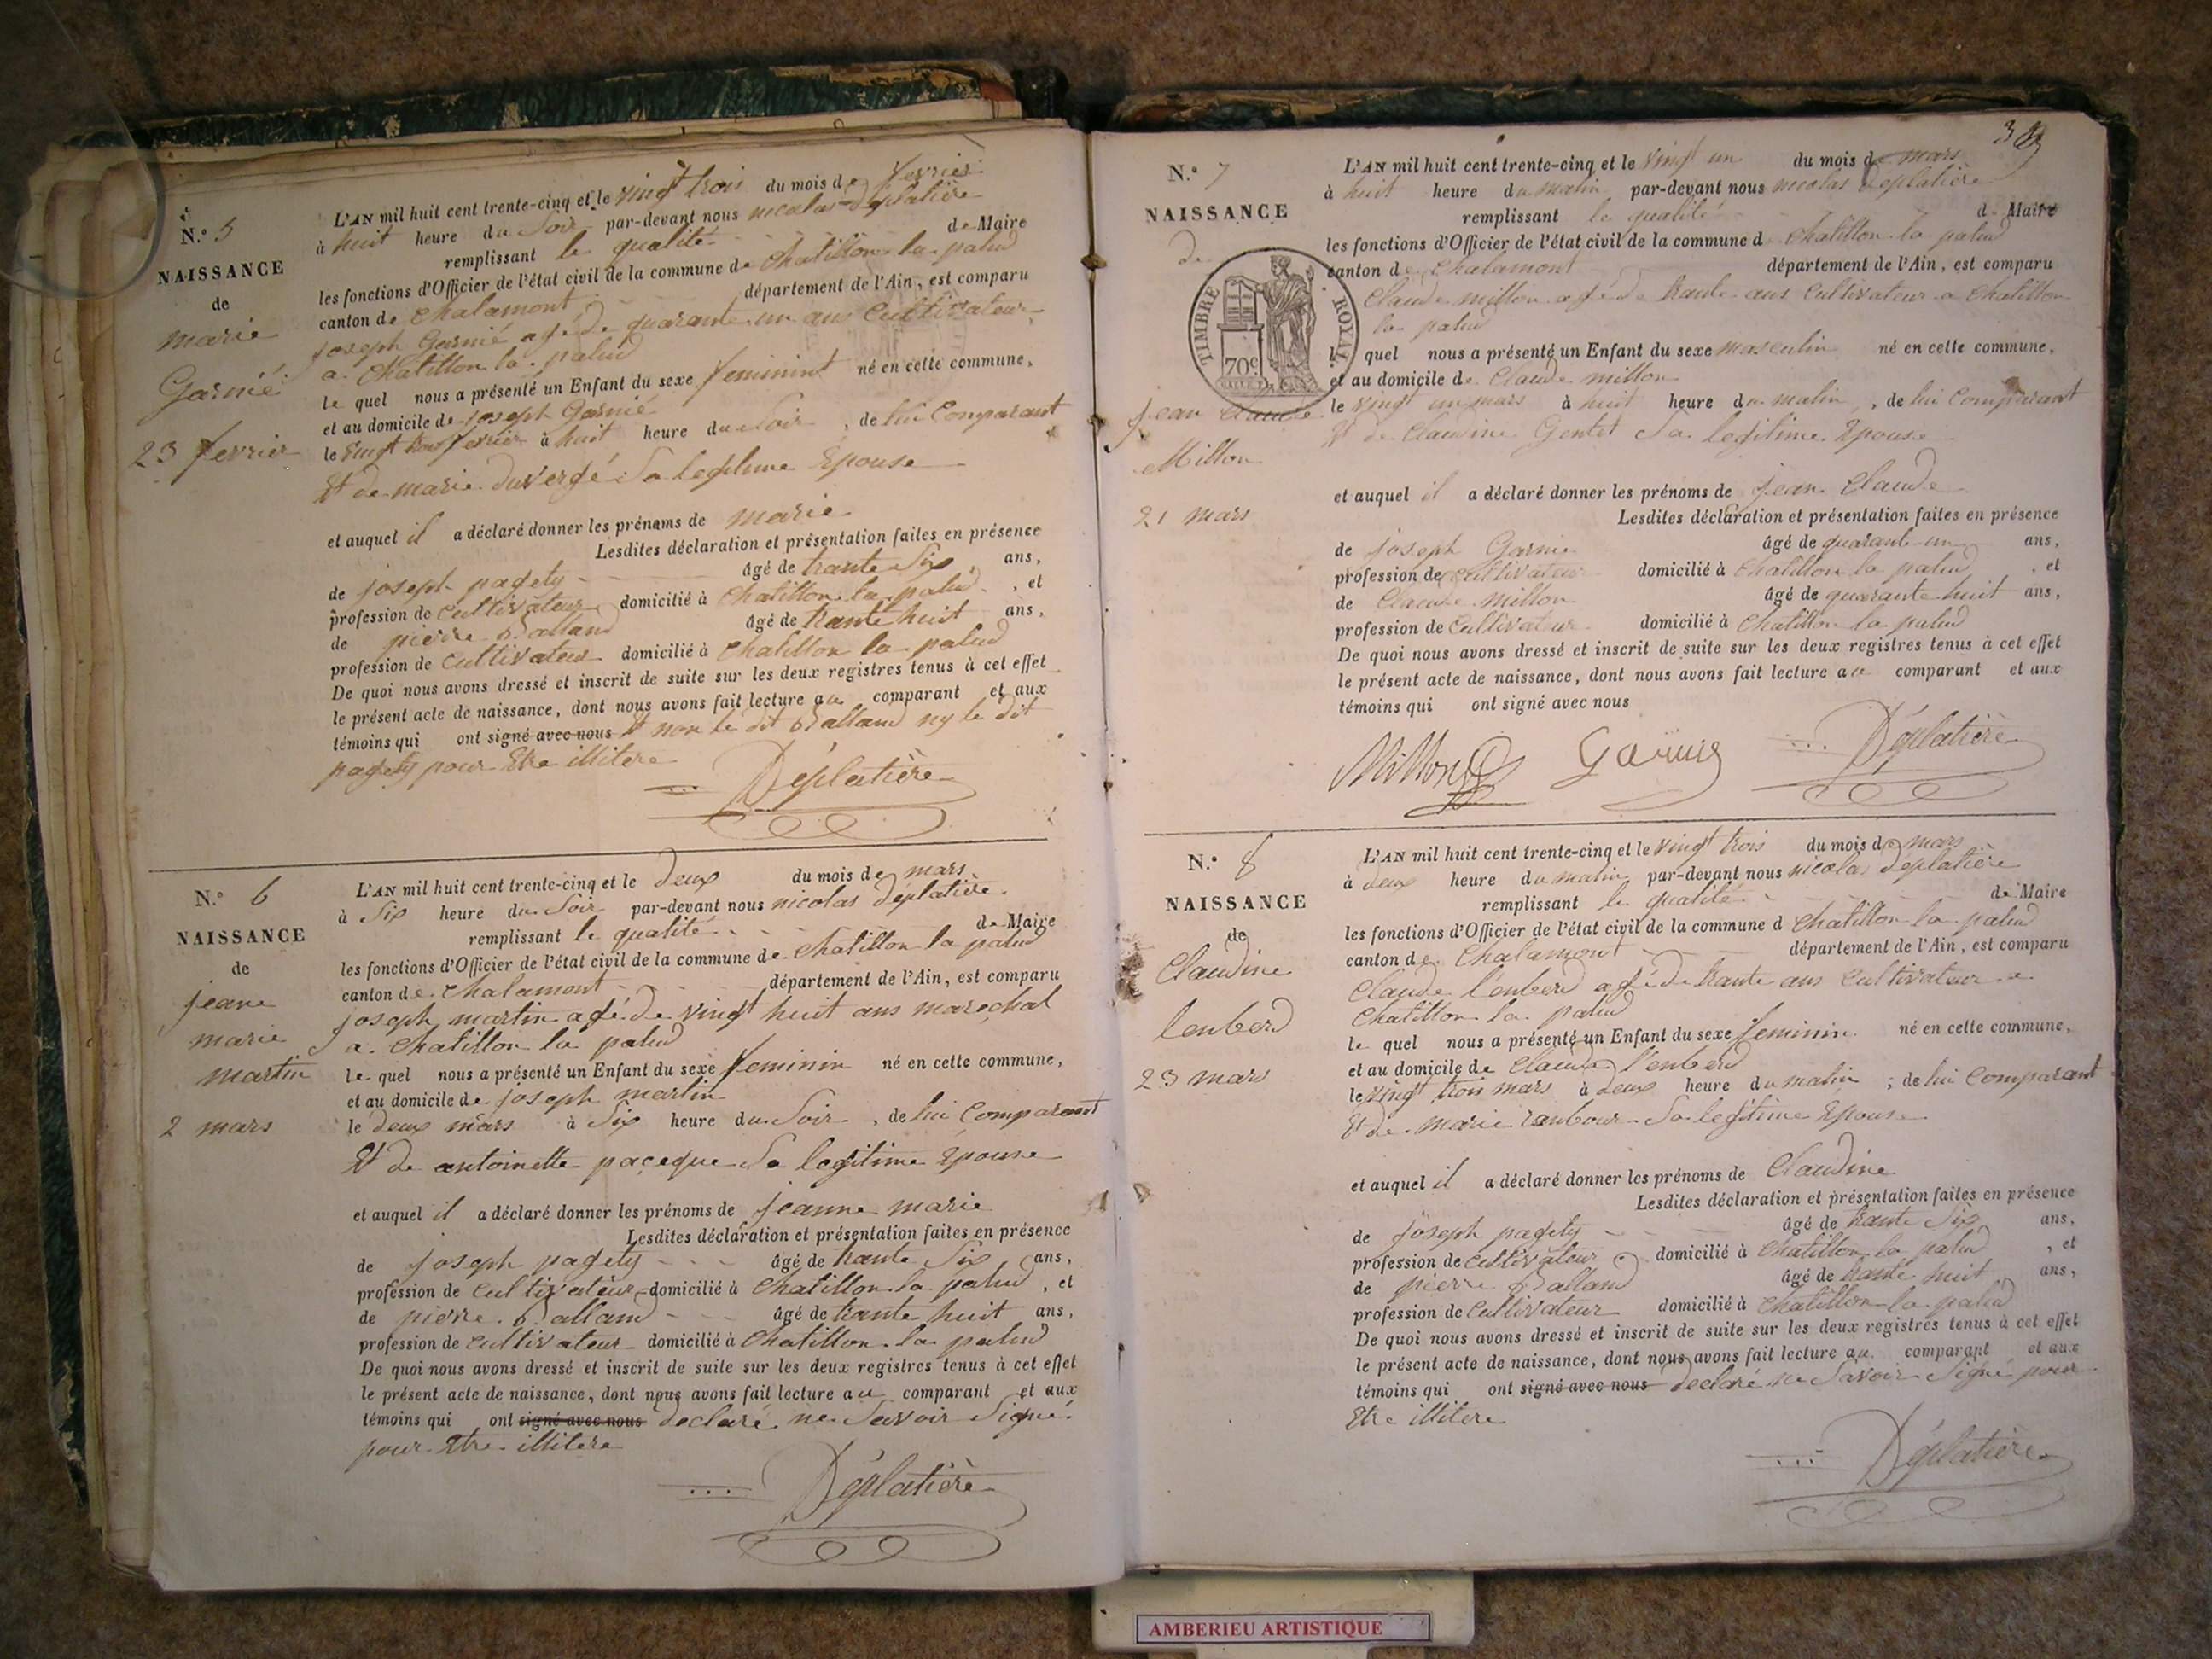 N.° 5
NAISSANCE
de
marie
Garnié
23 fevrier
L'AN mil huit cent trente-cinq et le vingt trois du mois de fevrier
à huit heure du Soir par-devant nous nicolas Déplatière
remplissant le qualité de Maire
les fonctions d'Officier de l'état civil de la commune de Chatillon la palud
canton de Chalamont département de l'Ain, est comparu
joseph Garnié agé de quarante un ans Cultivateur
a Chatillon la palud
le quel nous a présenté un Enfant du sexe feminint né en cette commune,
et au domicile de joseph Garnié
le vingt trois fevrier à huit heure du Soir, de lui Comparant
Et de marie duvergé Sa legitime Epouse
et auquel il a déclaré donner les prénoms de marie
Lesdites déclaration et présentation faites en présence
de joseph pagety âgé de trante Six ans,
profession de Cultivateur domicilié à Chatillon la palud, et
de pierre Balland âgé de trante huit ans,
profession de Cultivateur domicilié à Chatillon la palud
De quoi nous avons dressé et inscrit de suite sur les deux registres tenus à cet effet
le présent acte de naissance, dont nous avons fait lecture au comparant et aux
témoins qui ont signé avec nous Et non le dit Balland ny le dit
pagety pour Etre illitere
Déplatière
N.° 6
NAISSANCE
de
jeane
marie
martin
2 mars
L'AN mil huit cent trente-cinq et le deux du mois de mars
à Six heure du Soir par-devant nous nicolas déplatière
remplissant le qualité de Maire
les fonctions d'Officier de l'état civil de la commune de Chatillon la palud
canton de Chalamont département de l'Ain, est comparu
joseph martin agé de vingt huit ans marechal
a Chatillon la palud
le quel nous a présenté un Enfant du sexe feminin né en cette commune,
et au domicile de joseph martin
le deux mars à Six heure du Soir, de lui Comparant
Et de antoinette paceque Sa legitime Epouse
et auquel il a déclaré donner les prénoms de jeanne marie
Lesdites déclaration et présentation faites en présence
de joseph pagety âgé de trante Six ans,
profession de Cultivateur domicilié à Chatillon la palud, et
de pierre Balland âgé de trante huit ans,
profession de Cultivateur domicilié à Chatillon la palud
De quoi nous avons dressé et inscrit de suite sur les deux registres tenus à cet effet
le présent acte de naissance, dont nous avons fait lecture au comparant et aux
témoins qui ont signé avec nous declaré ne Savoir Signé
pour Etre illitere
Déplatière
N.° 7
NAISSANCE
de
TIMBRE ROYAL
70c
jean Claude
Millon
21 mars
L'AN mil huit cent trente-cinq et le vingt un du mois de mars
à huit heure du matin par-devant nous nicolas Déplatière
remplissant le qualité de Maire
les fonctions d'Officier de l'état civil de la commune d Chatillon la palud
canton de Chalamont département de l'Ain, est comparu
Claude millon agé de trante ans Cultivateur a Chatillon
la palud
le quel nous a présenté un Enfant du sexe masculin né en cette commune,
et au domicile de Claude millon
le vingt un mars à huit heure du matin, de lui Comparant
Et de Claudine Gentet Sa legitime Epouse
et auquel il a déclaré donner les prénoms de jean Claude
Lesdites déclaration et présentation faites en présence
de joseph Garnie âgé de quarante un ans,
profession de Cultivateur domicilié à Chatillon la palud, et
de Claude millon âgé de quarante huit ans,
profession de Cultivateur domicilié à Chatillon la palud
De quoi nous avons dressé et inscrit de suite sur les deux registres tenus à cet effet
le présent acte de naissance, dont nous avons fait lecture au comparant et aux
témoins qui ont signé avec nous
Millon Garnié Déplatière
N.° 8
NAISSANCE
de
Claudine
lenberd
23 mars
L'AN mil huit cent trente-cinq et le vingt trois du mois de mars
à deux heure du matin par-devant nous nicolas Déplatière
remplissant le qualité de Maire
les fonctions d'Officier de l'état civil de la commune d Chatillon la palud
canton de Chalamont département de l'Ain, est comparu
Claude lenberd agé de trante ans Cultivateur a
Chatillon la palud
le quel nous a présenté un Enfant du sexe feminin né en cette commune,
et au domicile de Claude lenberd
le vingt trois mars à deux heure du matin, de lui Comparant
Et de marie ranbour Sa legitime Epouse
et auquel il a déclaré donner les prénoms de Claudine
Lesdites déclaration et présentation faites en présence
de joseph pagety âgé de trante Six ans,
profession de Cultivateur domicilié à Chatillon la palud, et
de pierre Balland âgé de trante huit ans,
profession de Cultivateur domicilié à Chatillon la palud
De quoi nous avons dressé et inscrit de suite sur les deux registres tenus à cet effet
le présent acte de naissance, dont nous avons fait lecture au comparant et aux
témoins qui ont signé avec nous declaré ne Savoir Signé pour
Etre illitere
Déplatière
AMBERIEU ARTISTIQUE